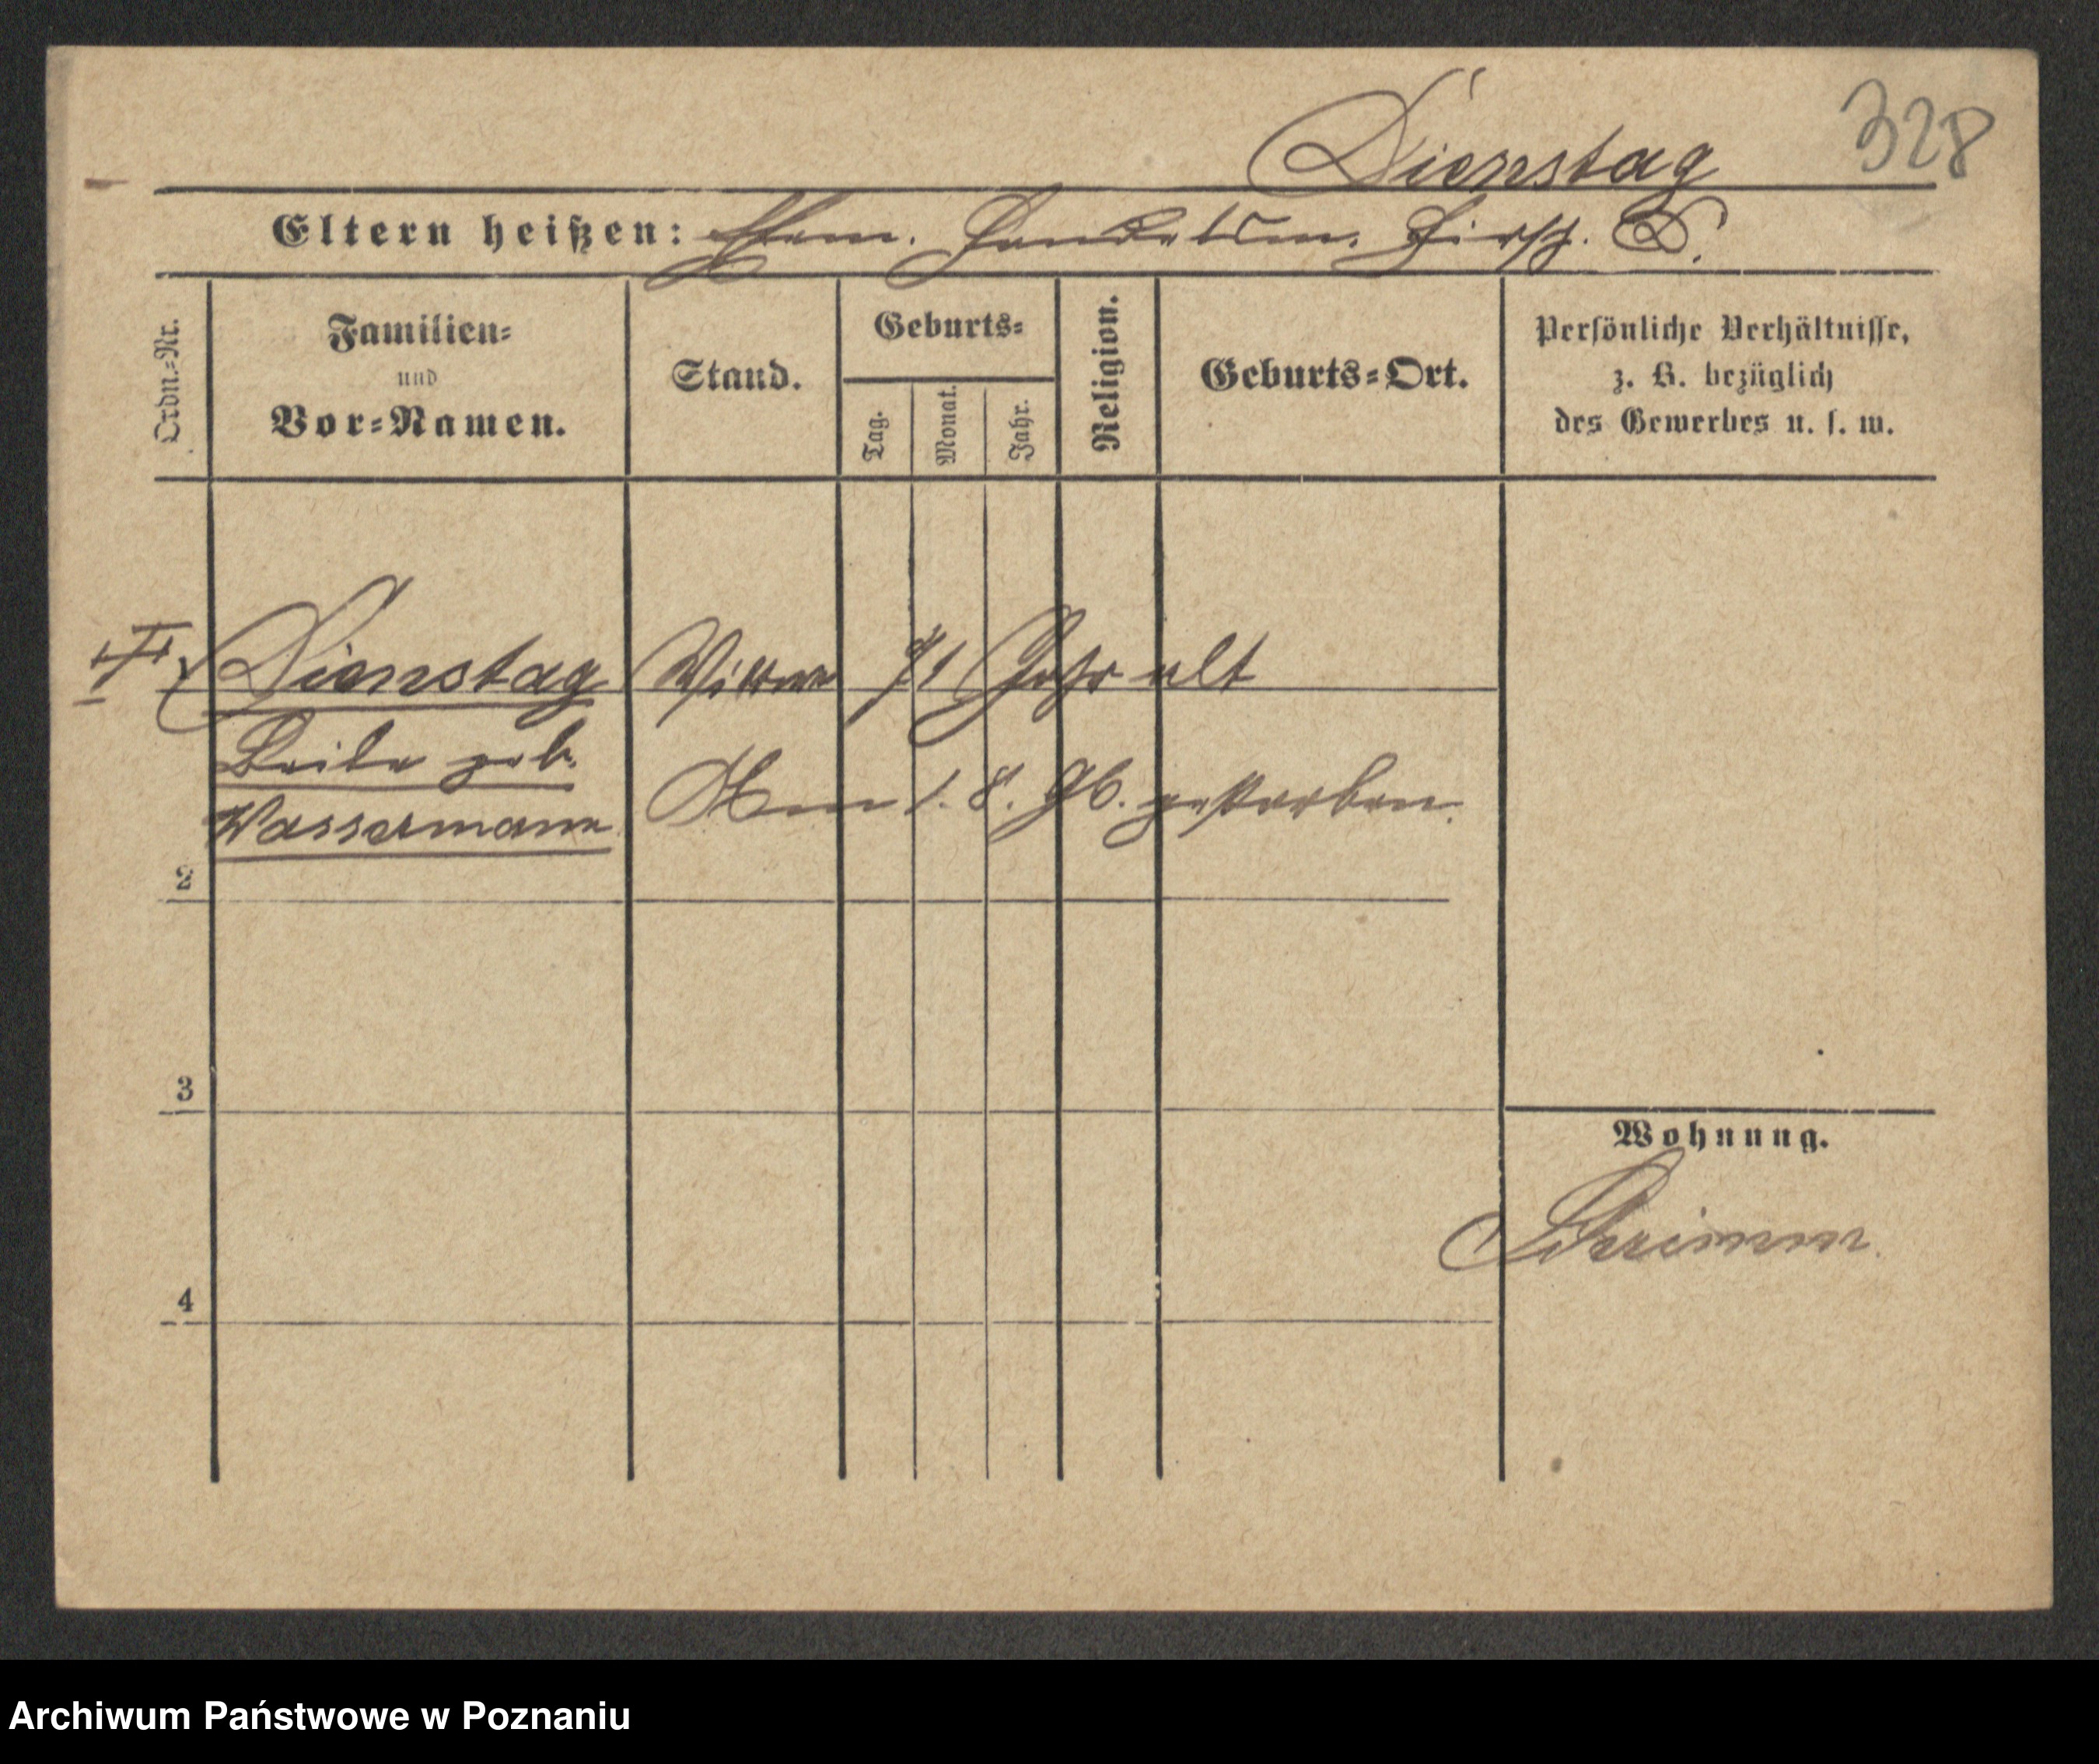 Dienstag
328
Eltern heißen: Ehem. Handelsm. Hirsch. D.
Ordn.-Nr.
Familien-
und
Vor-Namen.
Stand.
Geburts-
Tag.
Monat.
Jahr.
Religion.
Geburts-Ort.
Persönliche Verhältnisse,
z. B. bezüglich
des Gewerbes u. s. w.
Dienstag Witwe 71 Jahr alt
Beile geb.
Wassermann Am 1. 8. 96. gestorben.
2
3
Wohnung.
Schrimm
4
Archiwum Państwowe w Poznaniu